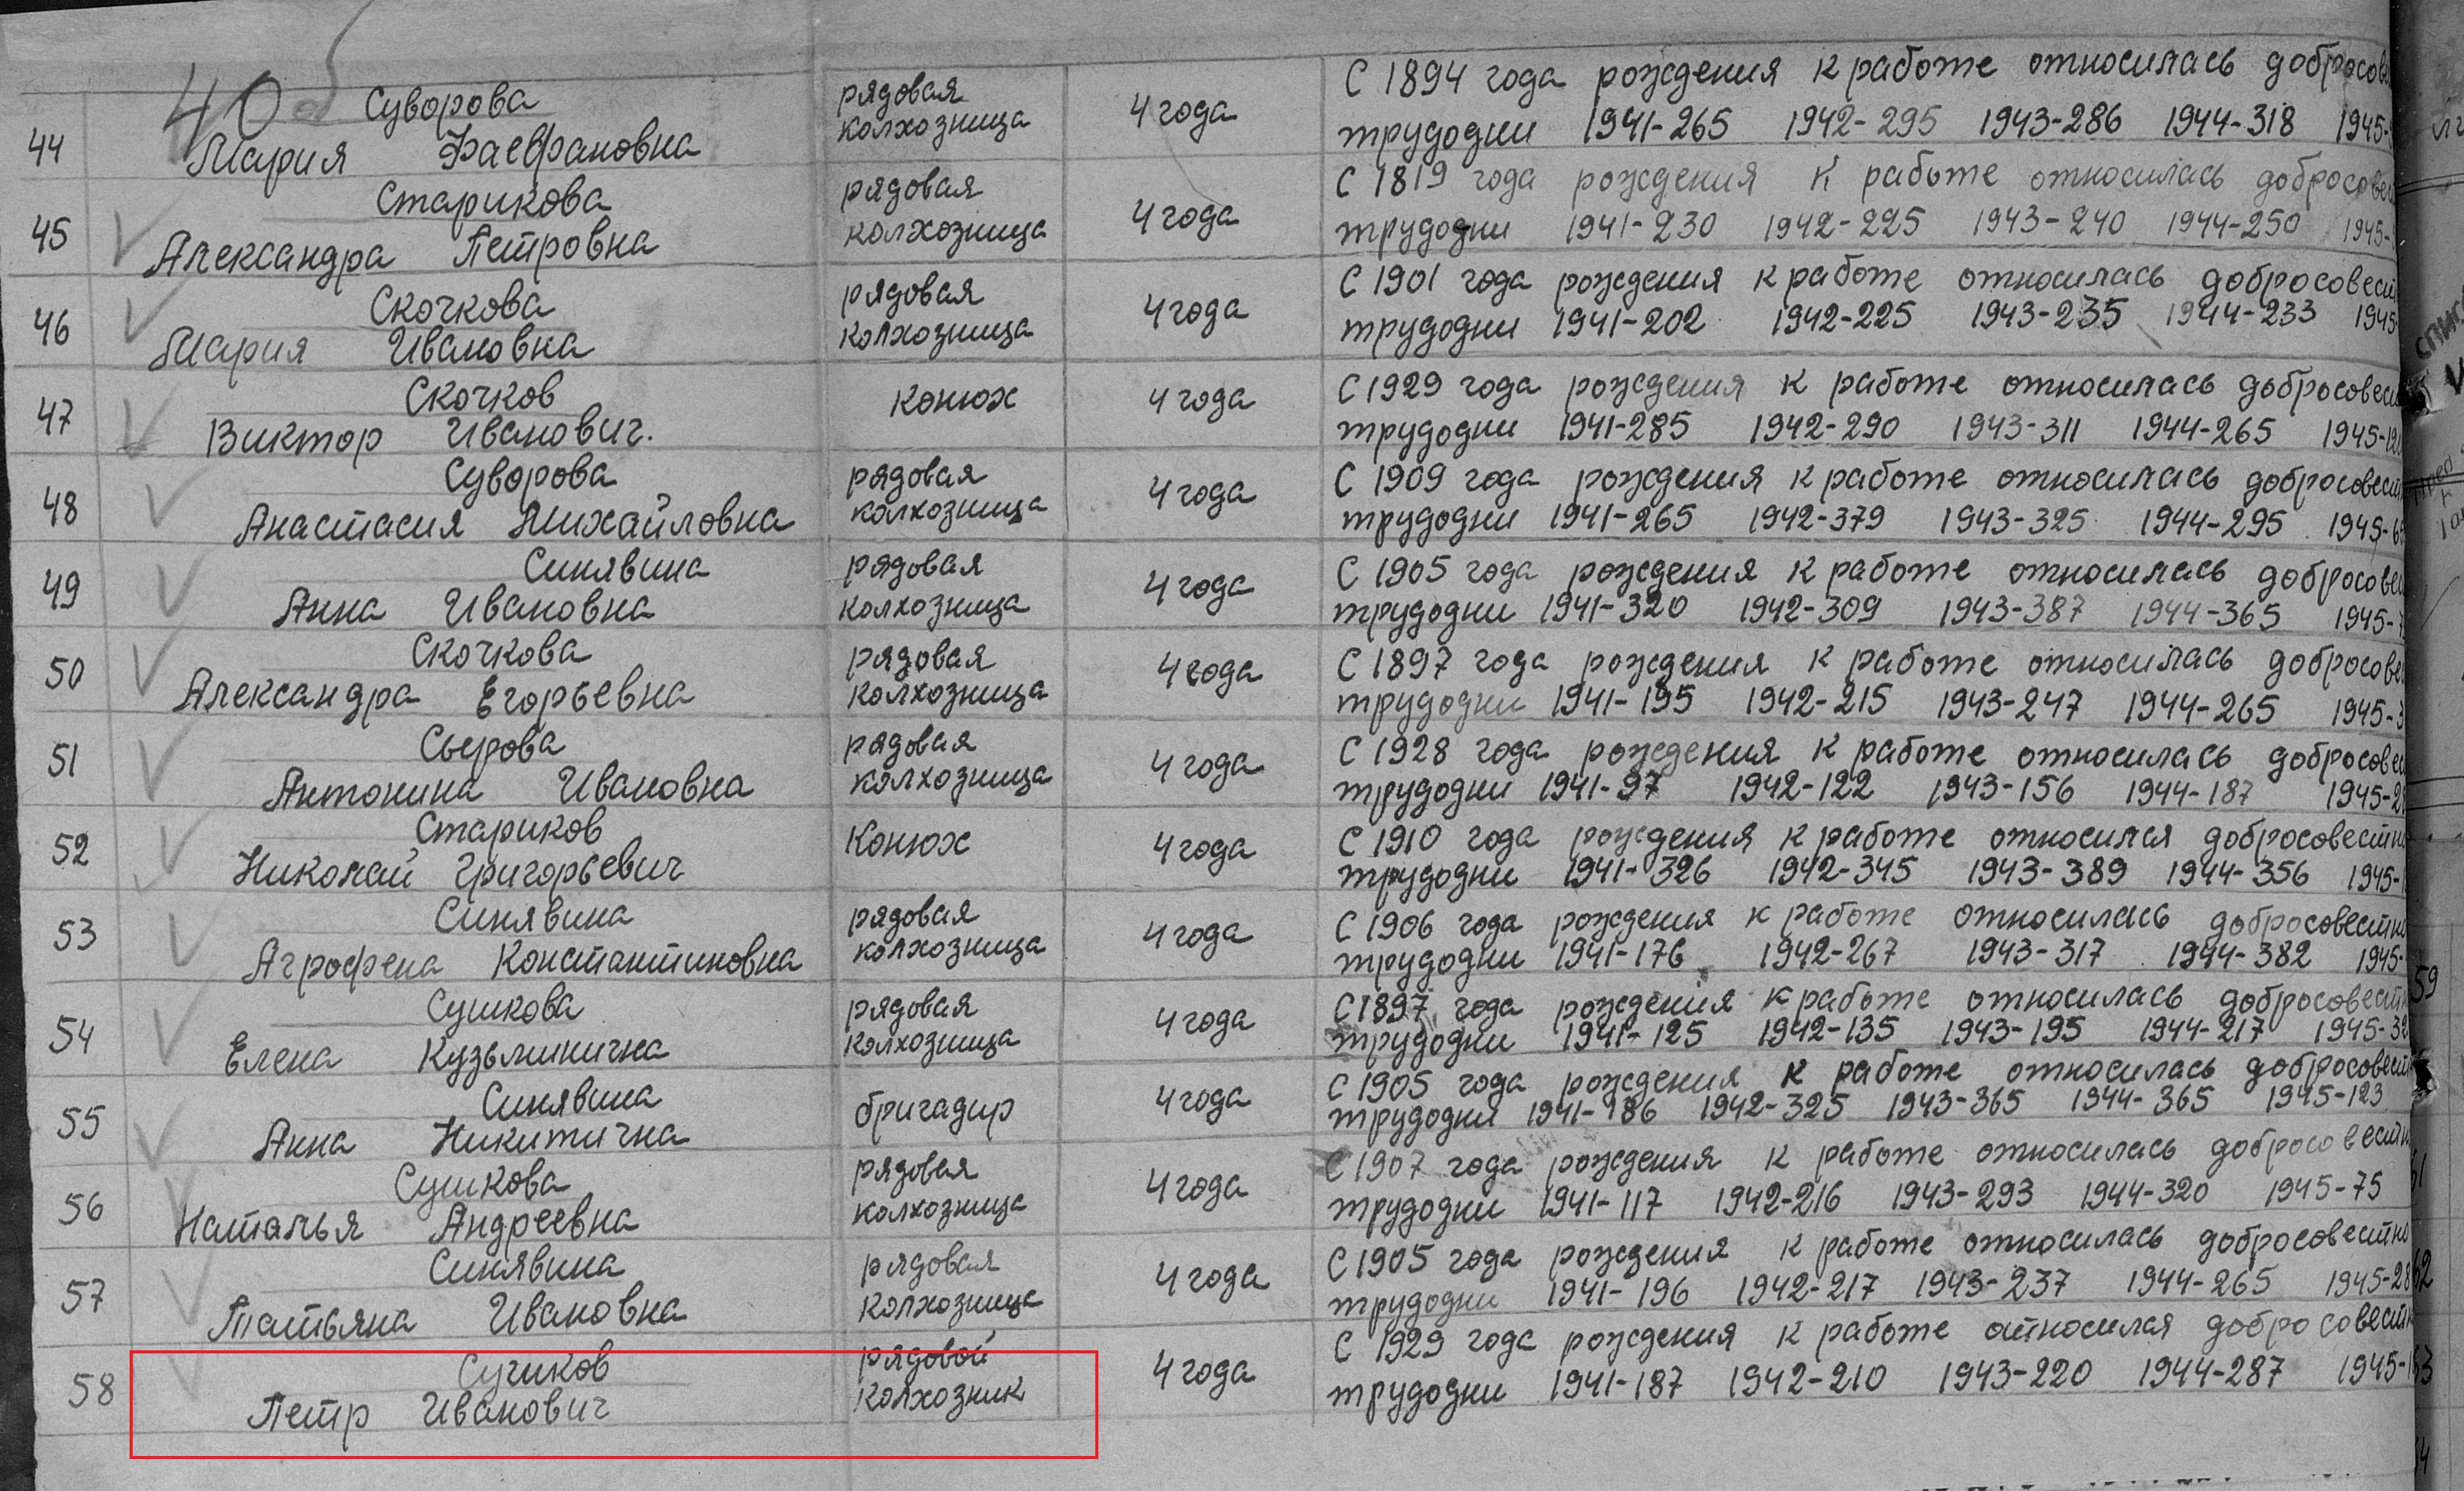 40 об
44 Суворова рядовая 4 года С 1894 года рождения к работе относилась добросов
Мария колхозница трудодни 1941-265 1942-295 1943-286 1944-318 1945-
45 Старикова рядовая 4 года С 1819 года рождения к работе относилась добросовес
Александра Петровна колхозница трудодни 1941-230 1942-225 1943-240 1944-250 1945-
46 Скочкова рядовая 4 года С 1901 года рождения к работе относилась добросовест
Мария Ивановна колхозница трудодни 1941-202 1942-225 1943-235 1944-233 1945-
47 Скочков Конюх 4 года С 1929 года рождения к работе относилась добросовест
Виктор Иванович. трудодни 1941-285 1942-290 1943-311 1944-265 1945-
48 Суворова рядовая 4 года С 1909 года рождения к работе относилась добросовест
Анастасия Михайловна колхозница трудодни 1941-265 1942-379 1943-325 1944-295 1945-
49 Синявина рядовая 4 года С 1905 года рождения к работе относилась добросовес
Анна Ивановна колхозница трудодни 1941-320 1942-309 1943-387 1944-365 1945-
50 Скочкова рядовая 4 года С 1897 года рождения к работе относилась добросове
Александра Егорьевна колхозница трудодни 1941-195 1942-215 1943-247 1944-265 1945-
51 Сьерова рядовая 4 года С 1928 года рождения к работе относилась добросовес
Антонина Ивановна колхозница трудодни 1941-97 1942-122 1943-156 1944-187 1945-
52 Стариков Конюх 4 года С 1910 года рождения к работе относился добросовестно
Николай Григорьевич трудодни 1941-326 1942-345 1943-389 1944-356 1945-
53 Синявина рядовая 4 года С 1906 года рождения к работе относилась добросовестно
Агрофена Константиновна колхозница трудодни 1941-176 1942-267 1943-317 1944-382 1945-
54 Сушкова рядовая 4 года С 1897 года рождения к работе относилась добросовестн
Елена Кузьминична колхозница трудодни 1941-125 1942-135 1943-195 1944-217 1945-32
55 Синявина бригадир 4 года С 1905 года рождения к работе относилась добросовест
Анна Никитична трудодни 1941-186 1942-325 1943-365 1944-365 1945-123
56 Сушкова рядовая 4 года С 1907 года рождения к работе относилась добросовестн
Наталья Андреевна колхозница трудодни 1941-117 1942-216 1943-293 1944-320 1945-75
57 Синявина рядовая 4 года С 1905 года рождения к работе относилась добросовестно
Татьяна Ивановна колхозница трудодни 1941-196 1942-217 1943-237 1944-265 1945-28
58 Сушков рядовой 4 года С 1929 года рождения к работе относился добросовестн
Петр Иванович колхозник трудодни 1941-187 1942-210 1943-220 1944-287 1945-
59
62